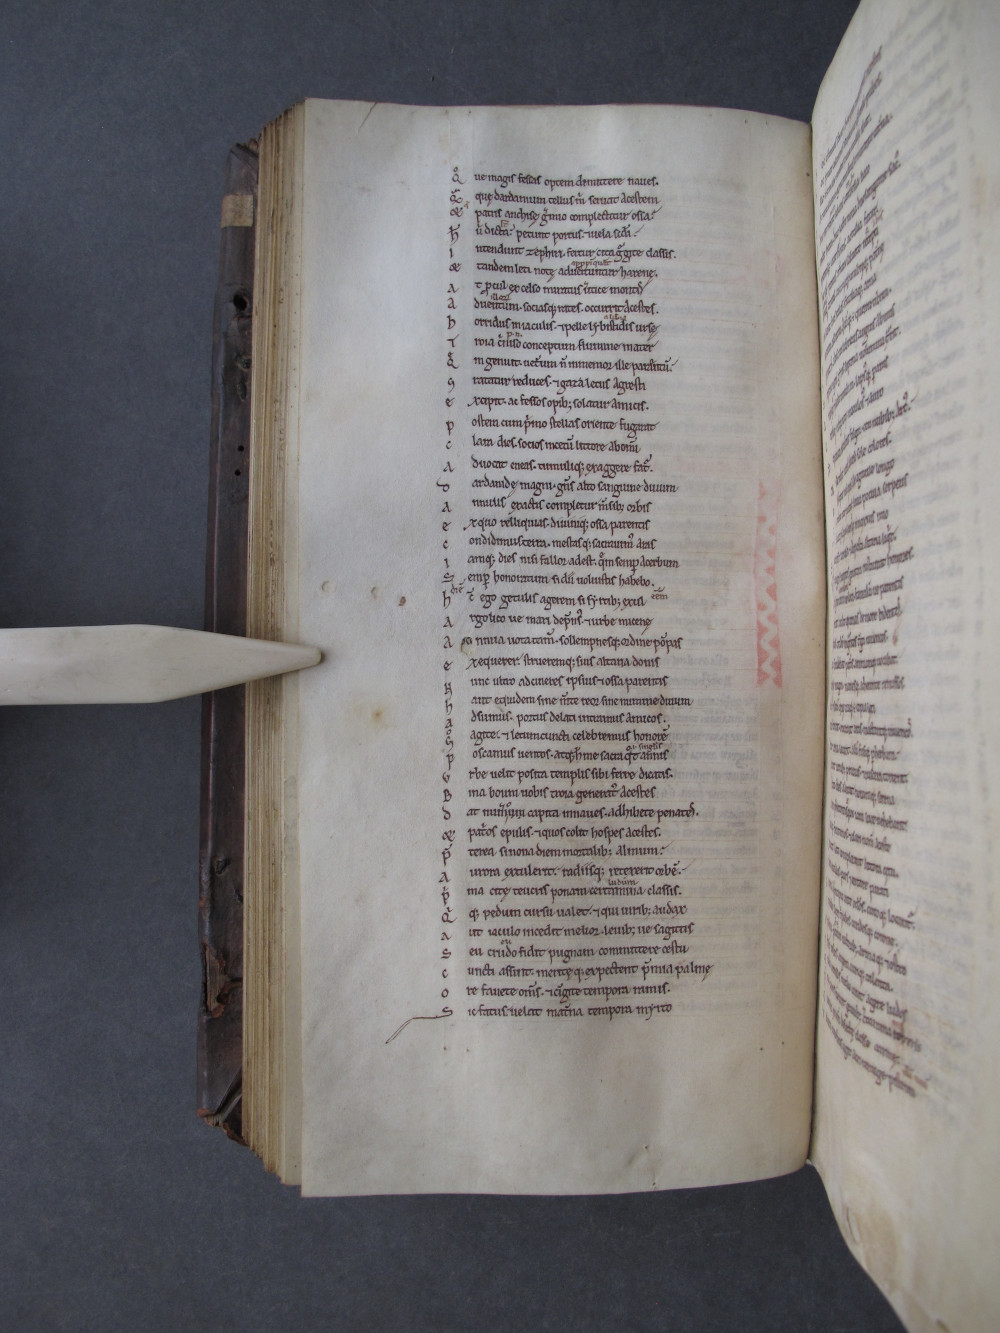 Qͦ ue magis fessas optem dimittere naues.
Q̄ que dardanium tellus m̄ seruat acesten
& patris anchisę g̊mio complectitur ossa.
h̄ u dicta. petunt portus. ⁊ uela scd̄i
I ntendunt zephiri. fertur cita g̊gite classis.
& tandem leti note aduertuntur harene.
A t p̱cul excelso miratus u̓tice montis
A duentum. sociasq; rates. occurrit Acestes.
h orridus in iaculis. ⁊ pelle lybistidis urse
T roia c̓miso conceptum flumine mater
Q̊ m genuit. uet̓um ñ inmemor ille parentū.
G ratatur reduces. ⁊ gaza letus agresti
E xcipit. ac fessos opib; solatur amicis.
P ostera cum p̓mo stellas oriente fugarat
C lara dies. socios in cetū littore ab omni
A duocat eneas. tumuliq; ex aggere fat̓.
D ardanidę magni. gn̄s alto sanguine diuum
A nnuus exactis completur m̄sib; orbis
E x quo relliquias. diuiniq; ossa parentis
C ondidimus terra. mestasq; sacrauim̓ aras
I amq; dies nisi fallor adest. q̊m semp̱ acerbum
S emp̱ honoratum si dii uoluistis habebo.
h c̄ ego getulis agerem si syrtib; exul
A rgolico ue mari dep̱nsus. ⁊ urbe micene
A nnua uota tam̄. sollempnesq; ordine pōpas
E xequerer. strueremq; suis altaria donis
N unc ultro ad cineres ipsius ⁊ ossa parentis
h aut equidem sine m̄te reor sine numine diuum
A dsumus. portus delati intramus amicos.
G͛ agite. ⁊ letum cuncti celebremus honorē
P oscamus uentos. atq; h̄ me sacra q̊t annis
V rbe uelit posita templis sibi ferre dicatis.
B ina boum uobis troia generat̓ acestes
D at num̓o capita in naues. adhibete penates.
& pat̓os epulis. ⁊ quos colit hospes acestes.
P̄ terea si nona diem mortalib; almum
A urora extulerit. radiisq; retexerit orbē.
P̓ ma citę teucris ponam certamina classis.
Q̓ q; pedum cursu ualet. ⁊ qui uirib; audax
A ut iaculo incedit melior. leuib; ue sagittis
S eu crudo fidit pugnam committere cestu
C uncti assint. meritęq; expectent p̄mia palmę
O re fauete om̄s. ⁊ cīgite tempora ramis.
S ic fatus uelat mat̓na tempora myrto